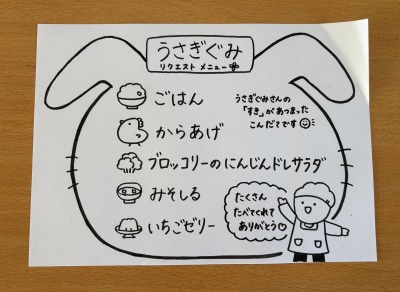 うさぎぐみ
リクエスト メニュー
ごはん
からあげ
ブロッコリーのにんじんドレサラダ
みそしる
いちごゼリー
うさぎぐみさんの
「すき」があつまった
こんだてです
たくさん
たべてくれて
ありがとう